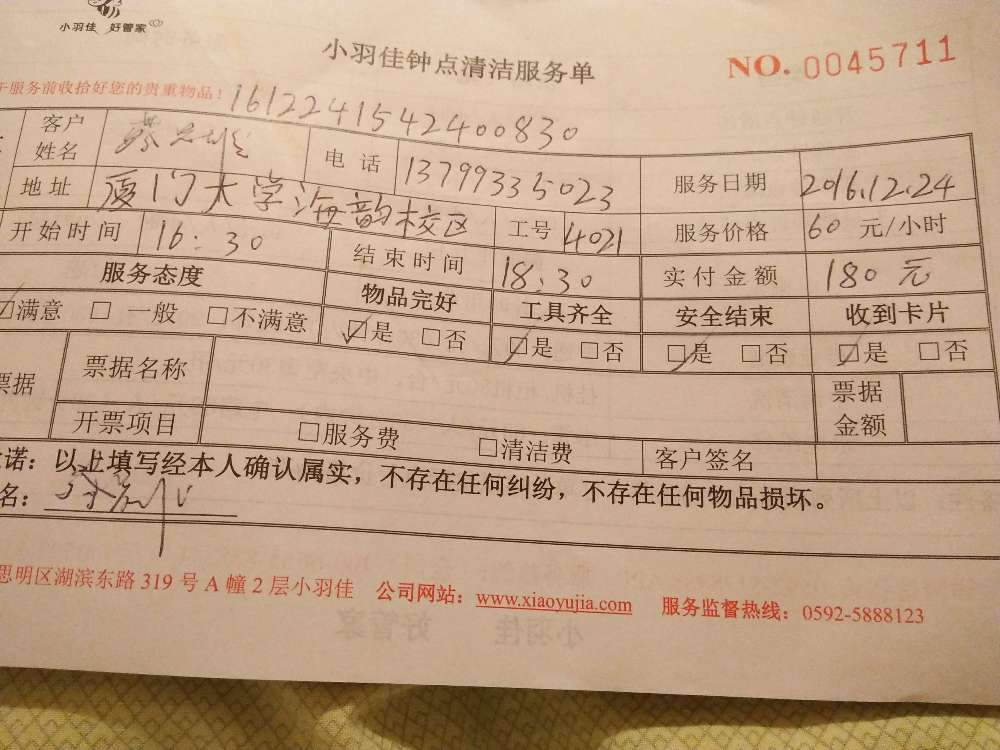 小羽佳 好管家
小羽佳钟点清洁服务单
NO. 0045711
于服务前收拾好您的贵重物品！
161224154240 0830
客户姓名 蔡 电话 13799335023 服务日期 2016.12.24
地址 厦门大学海韵校区 工号 4021 服务价格 60 元/小时
开始时间 16:30 结束时间 18:30 实付金额 180元
服务态度 物品完好 工具齐全 安全结束 收到卡片
☑满意 □ 一般 □不满意 ☑是 □否 ☑是 □否 ☑是 □否 ☑是 □否
票据 票据名称 票据金额
开票项目 □服务费 □清洁费 客户签名
诺：以上填写经本人确认属实，不存在任何纠纷，不存在任何物品损坏。
名：
思明区湖滨东路 319 号 A 幢 2 层小羽佳 公司网站：www.xiaoyujia.com 服务监督热线：0592-5888123
小羽佳 好管家